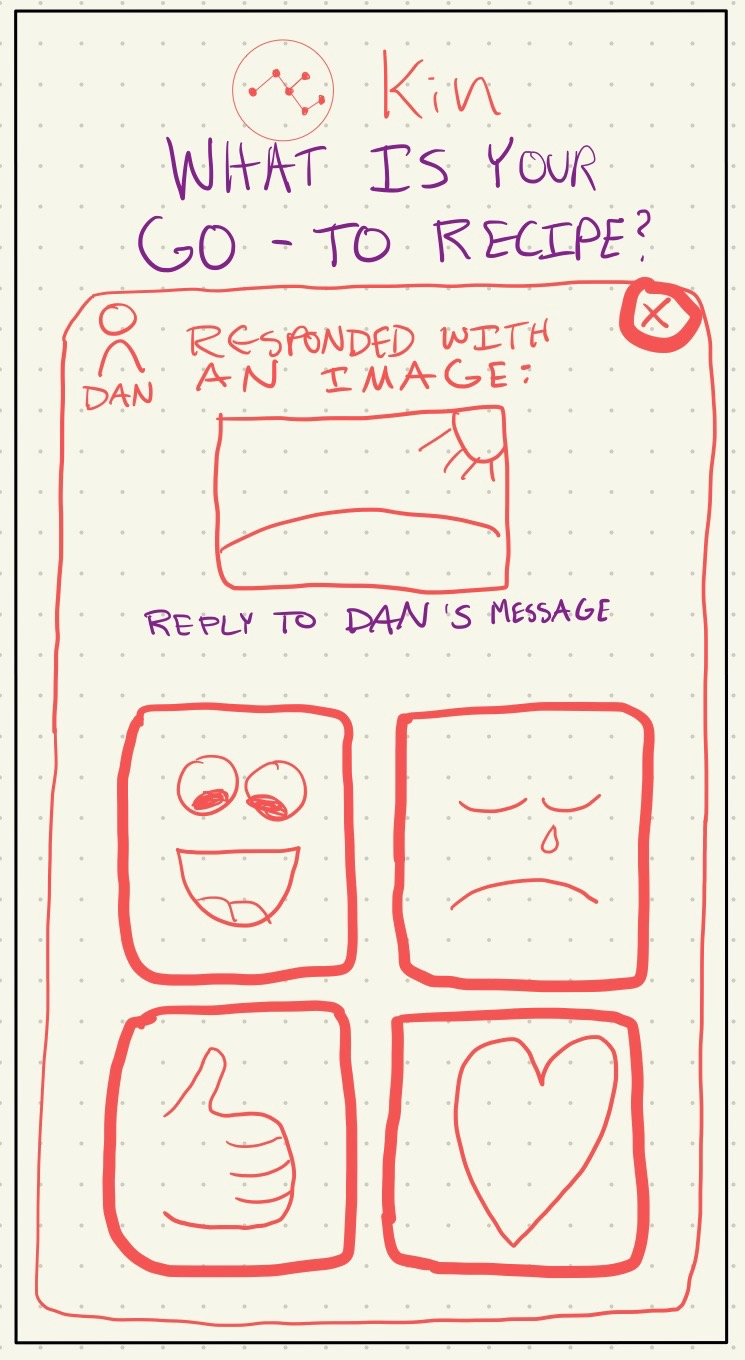 Kin
WHAT IS YOUR
GO-TO RECIPE?
X
RESPONDED WITH
AN IMAGE:
DAN
REPLY TO DAN'S MESSAGE